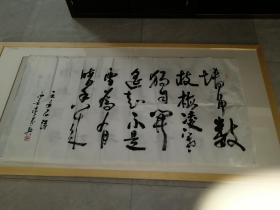 墙角数
枝梅凌寒
独自开
遥知不是
雪为有
暗香来
王安石诗